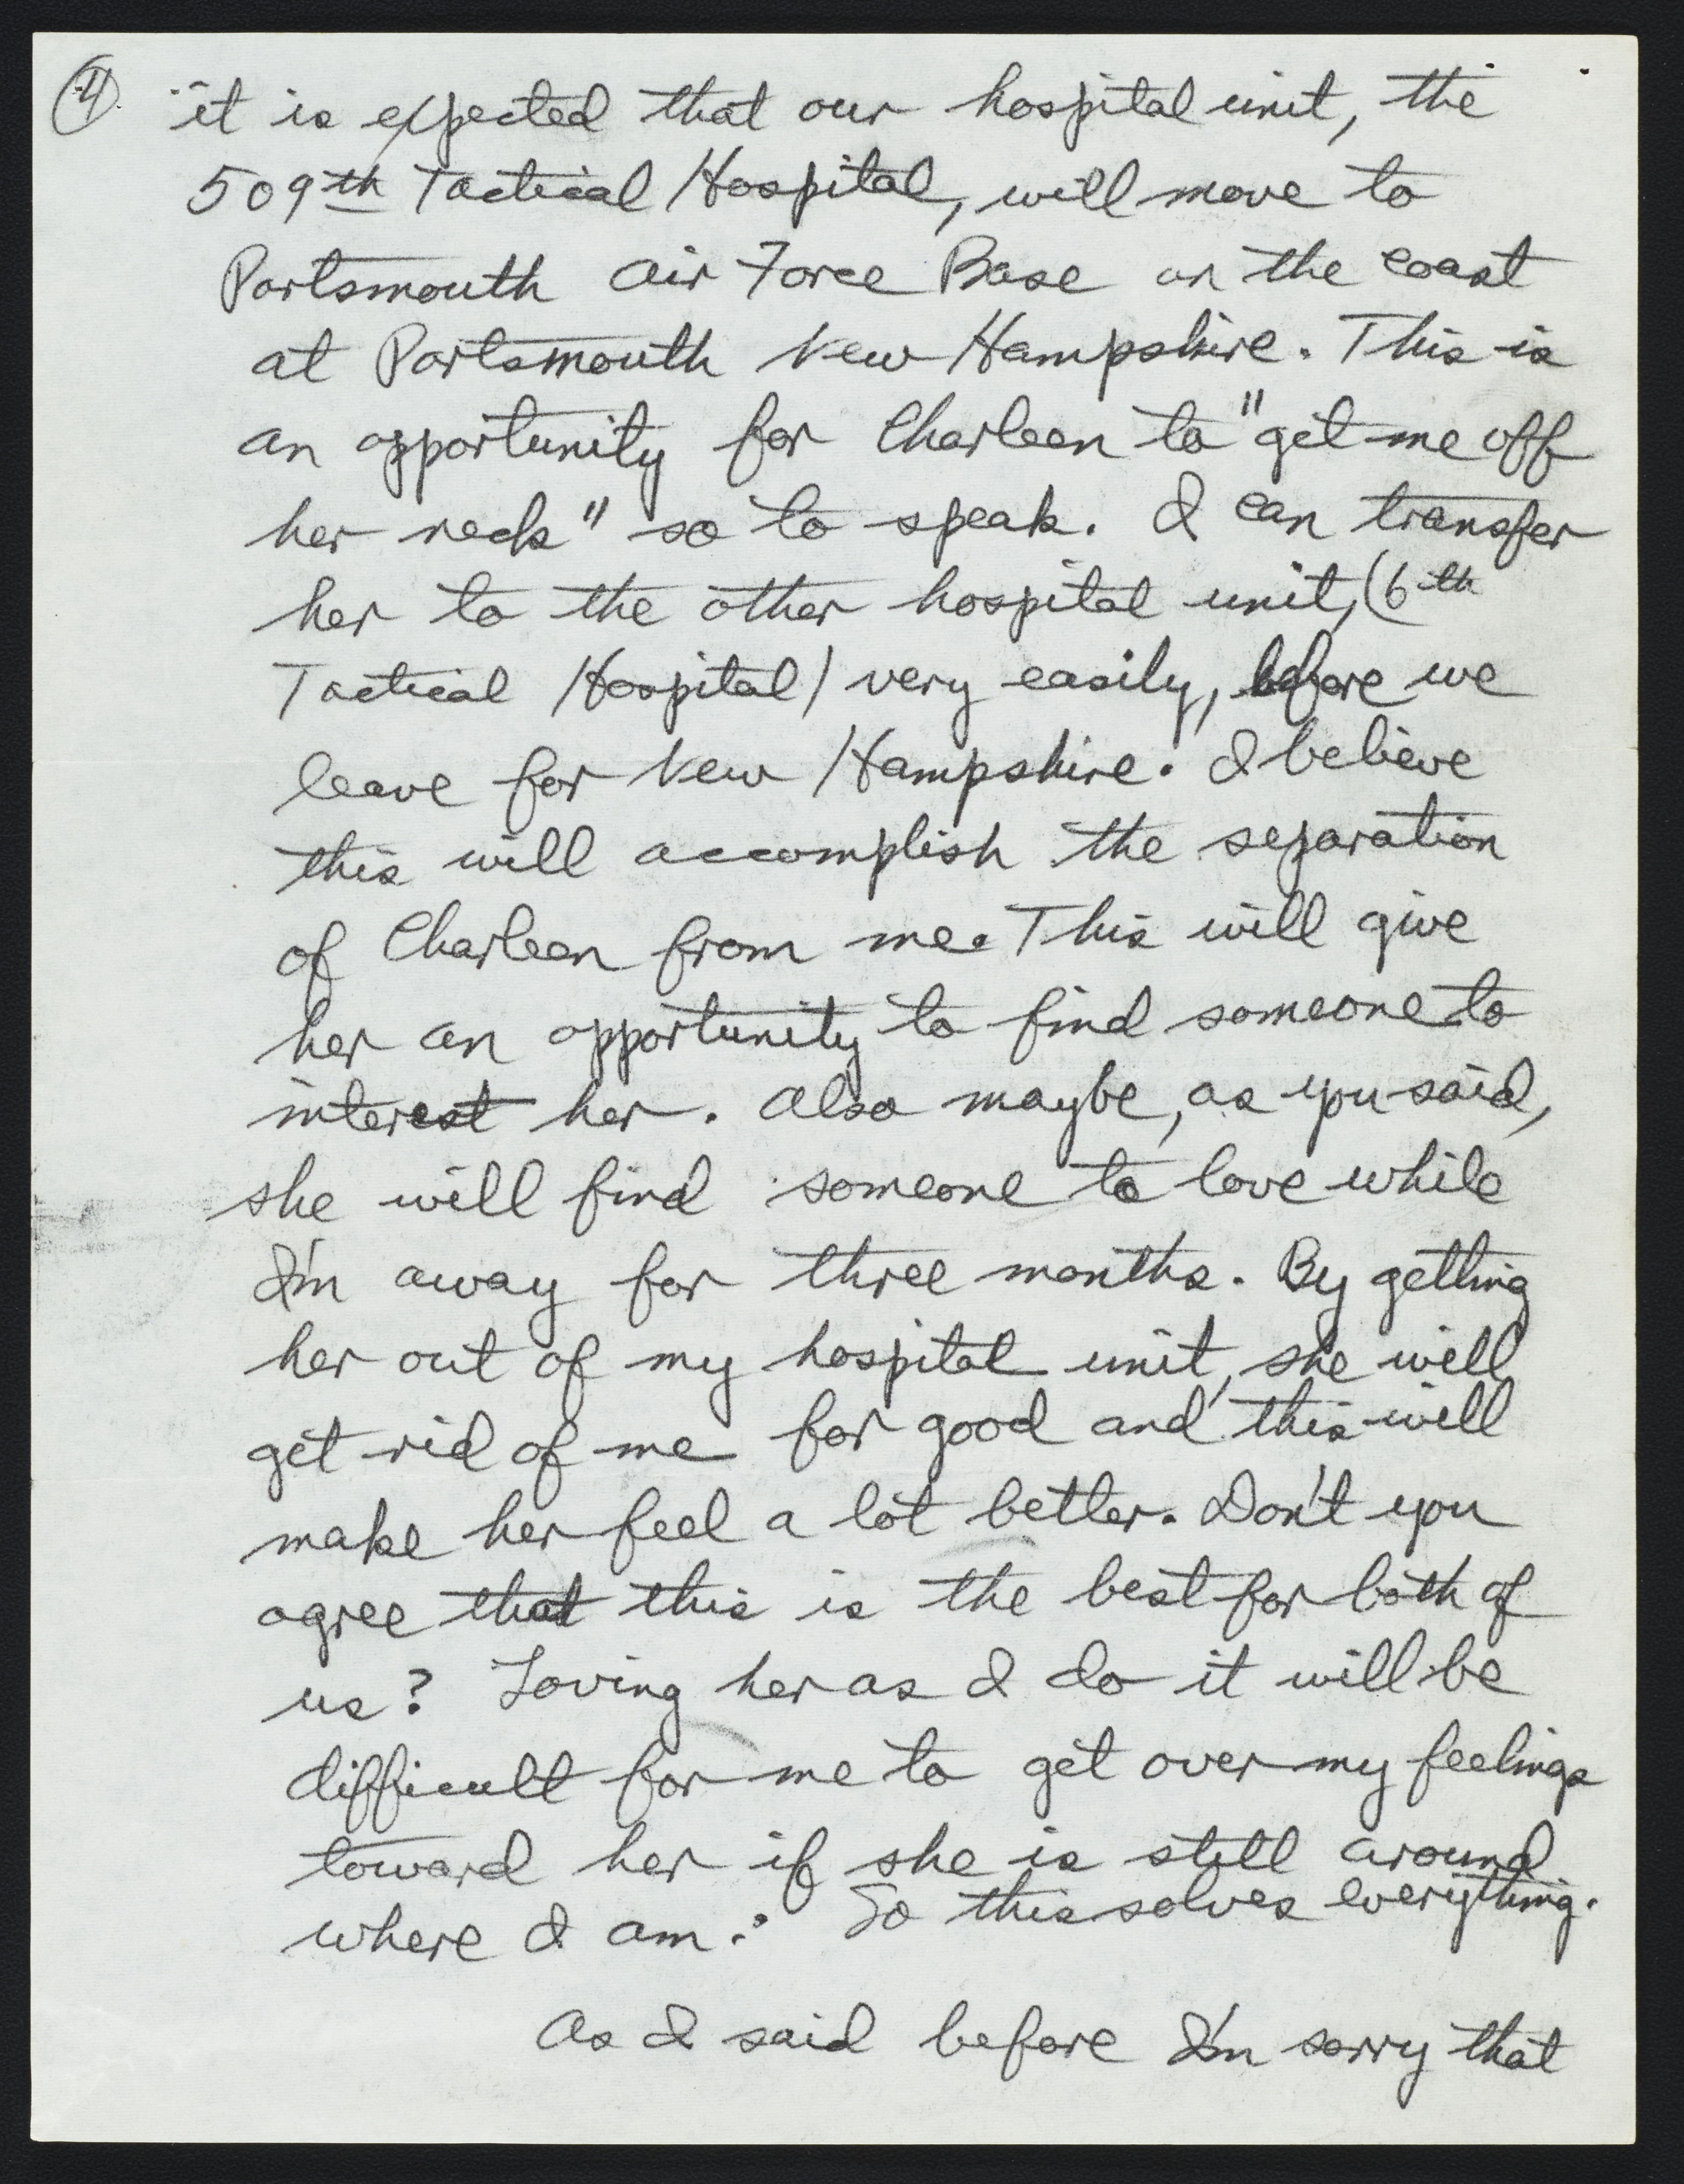 ④ it is expected that our hospital unit, the
509th Tactical Hospital, will move to
Portsmouth Air Force Base on the coast
at Portsmouth New Hampshire. This is
an opportunity for Charleen to "get me off
her neck" so to speak. I can transfer
her to the other hospital unit, (6th
Tactical Hospital) very easily, before we
leave for New Hampshire. I believe
this will accomplish the separation
of Charleen from me. This will give
her an opportunity to find someone to
interest her. Also maybe, as you said,
she will find someone to love while
I'm away for three months. By getting
her out of my hospital unit, she will
get rid of me for good and this will
make her feel a lot better. Don't you
agree that this is the best for both of
us? Loving her as I do it will be
difficult for me to get over my feelings
toward her if she is still around
where I am. So this solves everything.
As I said before I'm sorry that